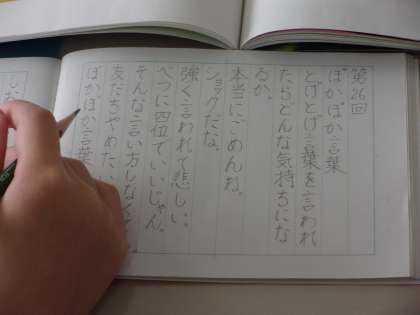 第26回
ぽかぽか言葉
とげとげ言葉を言われ
たらどんな気持ちにな
るか。
本当にごめんね。
ショックだな。
強く言われて悲しい。
べつに四位でいいじゃん。
そんな言い方しなく
友だちやめたい
ぽかぽか言葉